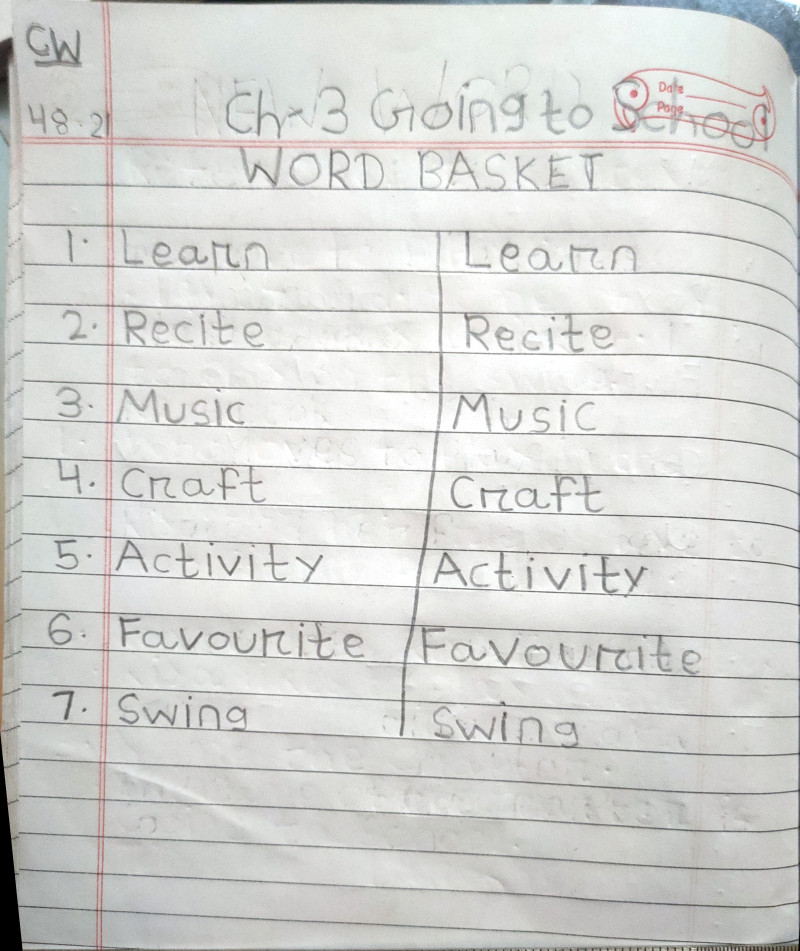 CW
48.2
Ch-3 Going to School
Date
Page
WORD BASKET
1. Learn Learn
2. Recite Recite
3. Music Music
4. Craft Craft
5. Activity Activity
6. Favourite Favourite
7. Swing Swing